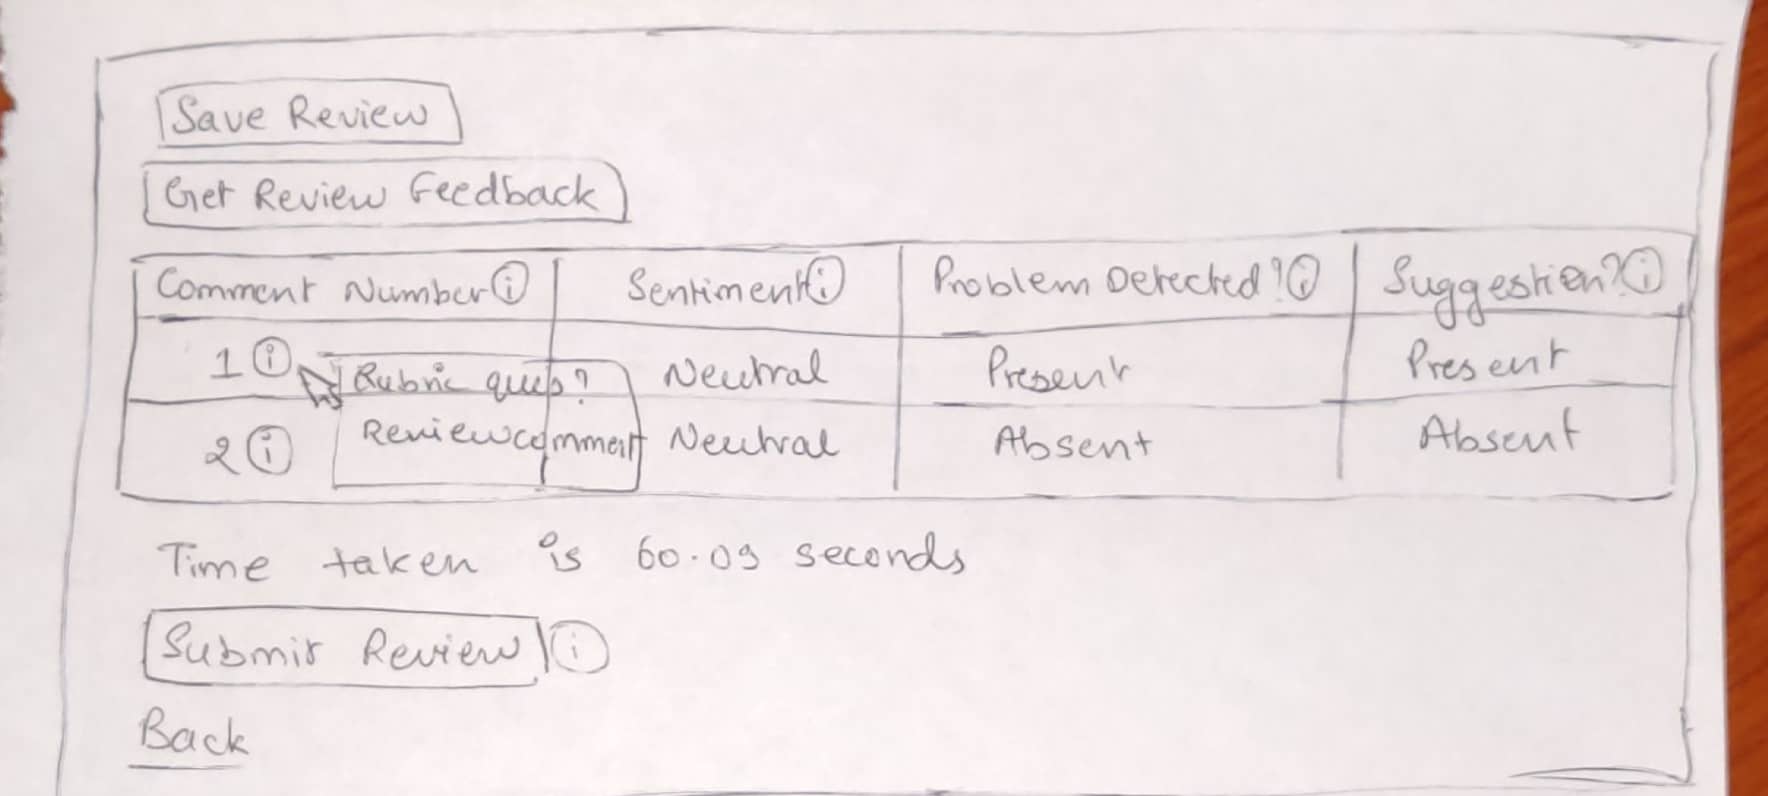 Save Review
Get Review Feedback
Comment Number i Sentiment i Problem Detected? i Suggestion? i
1 i Neutral Present Present
Rubric ques?
Review comment
2 i Neutral Absent Absent
Time taken is 60.09 seconds
Submit Review i
Back